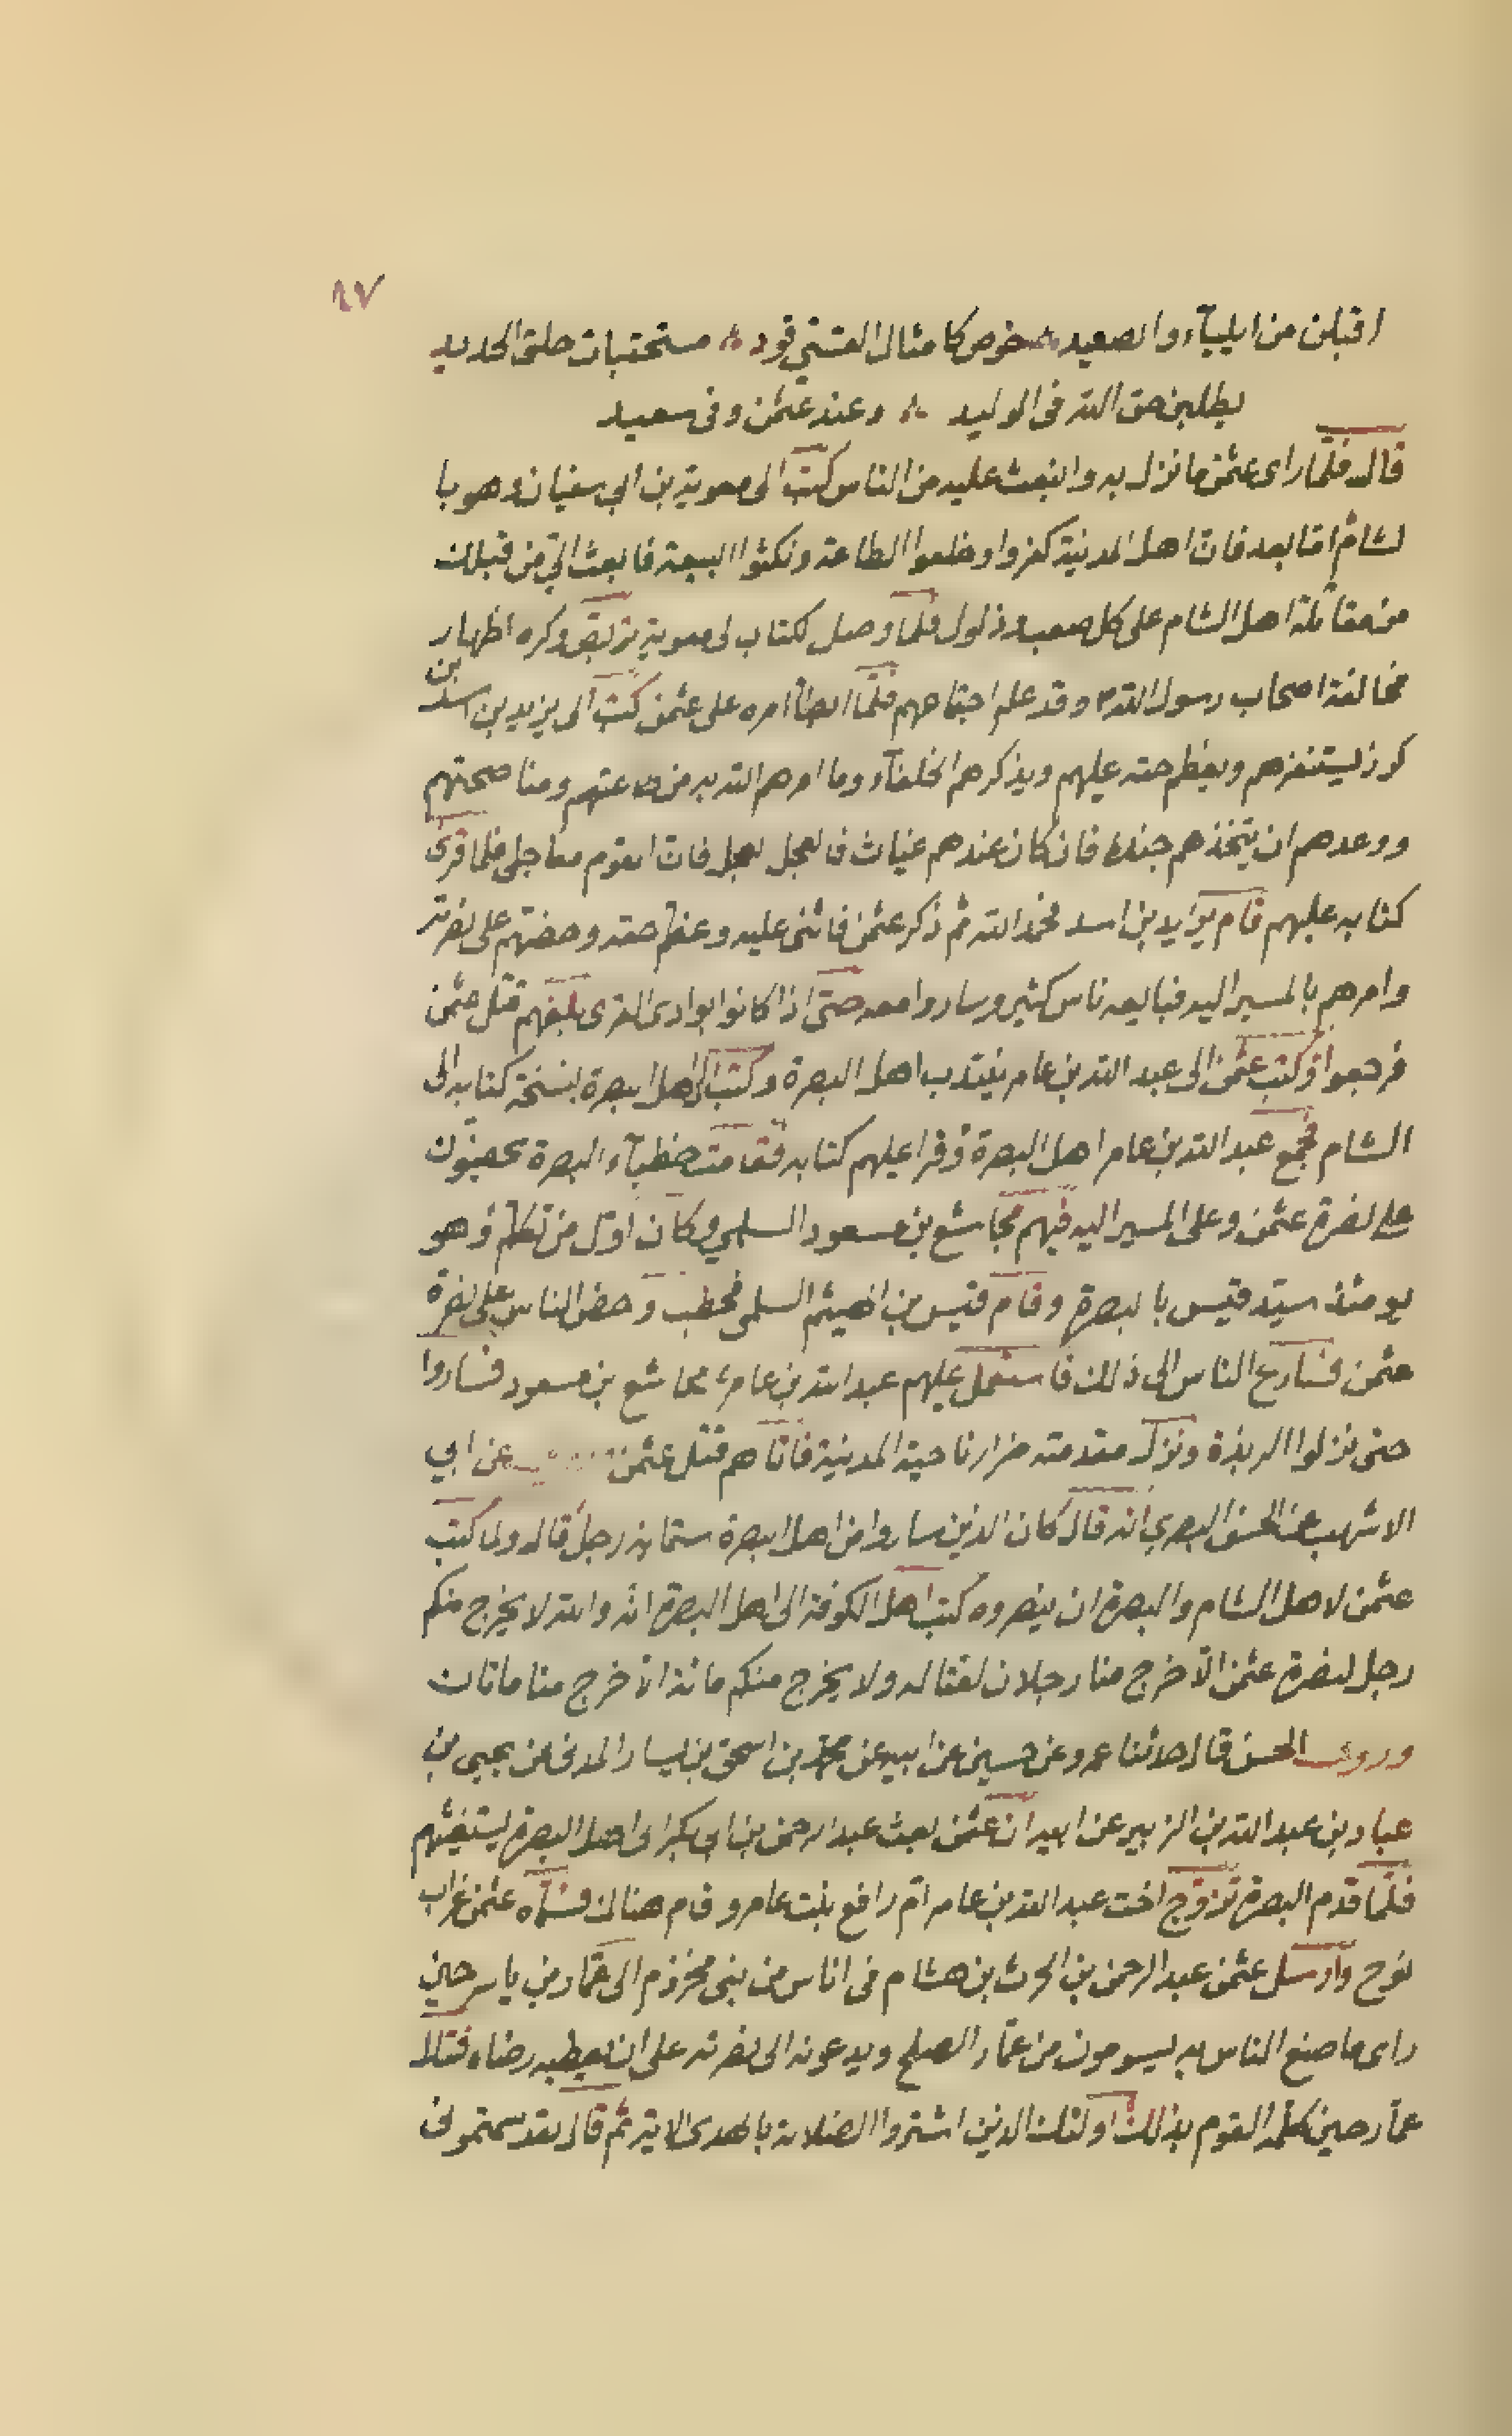 ٨٧
اقبلن من ايليآء والصعيد ∴ خوص كامثال القسي قود ∴ مستحقبات حلق الحديد
يطلبن حق الله في الوليد ∴ وعند عثمن وفى سعيد
قال فلمّا راى عثمن ما نزل به وانبعث عليه من الناس كتب الى معوية بن ابي سفيان وهو با
لشام امّا بعد فان اهل المدينة كفروا وخلعوا الطاعة ونكثوا البيعة فابعث اليّ من قبلك
من مقاتلة اهل الشام على كل صعب وذلول فلما وصل لكتاب لى معوية تربّص وكره اظهار
مخالفة اصحاب رسول الله وقد علم اجتماعهم فلمّا ابطأ امره على عثمن كتب الى يزيد بن اسد بن
كرز ليستنفرهم ويعظم حقه عليهم ويذكرهم الخلفآء وما امرهم الله به من طاعتهم ومناصحتهم
ووعدهم ان يتخذهم جندا فان كان عندهم غياث فالعجل لعجل فان القوم معاجلى فلما قرئ
كتابه عليهم قام يزيد بن اسد فحمد الله ثم ذكر عثمن فاثنى عليه وعظم حقه وحضهم على نصرته
وامرهم بالمسير اليه فبايعه ناس كثير وساروا معه حتى اذا كانوا بوادى القرى بلغهم قتل عثمن
فرجعوا وكتب عثمن الى عبد الله بن عامر ينتدب اهل البصرة وكتب الى اهل البصرة بنسخة كتابه الى
الشام فجمع عبد الله بن عامر اهل البصرة وقرا عليهم كتابه فقامت خطبآء البصرة يحضّون
على نصرة عثمن وعلى المسير اليه فيهم مجاشع بن مسعود السلمي وكان اوّل من تكلم وهو
يومئذ سيّد قيس بالبصرة وقام قيس بن الهيثم السلمى فخطب وحض الناس على نصرة
عثمن فسارع الناس الى ذلك فاستعمل عليهم عبد الله بن عامر مجاشع بن مسعود فساروا
حتى نزلوا الربذة ونزل مقدمته صرار ناحية المدينة فاتاهم قتل عثمن عن ابي
الاشهب عن الحسن البصري انه قال كان الذين ساروا من اهل البصرة ستمائة رجل قال ولما كتب
عثمن لاهل الشام والبصرة ان ينصروه كتب اهل الكوفة الى اهل البصرة انّه والله لا يخرج منكم
رجل لنصرة عثمن الاّ خرج منا رجلان لقتاله ولا يخرج منكم مائة الا خرج منا مائتان
وروى الحسن قال حدثنا عمرو عن حسين عن ابيه عن محمد بن اسحق بن يسار المدنى عن يحيى بن
عباد بن عبد الله بن الزبير عن ابيه ان عثمن بعث عبد الرحمن بن ابى بكر الى اهل البصرة يستغيثهم
فلمّا قدم البصرة تزوّج اخت عبد الله بن عامر امّ رافع بنت عامر وقام هناك فسمّاه عثمن غراب
نوح وارسل عثمن عبد الرحمن بن الحرث بن هشام فى اناس من بنى مخزوم الى عمّار بن ياسر حين
راى ما صنع الناس به ليسومون من عمّار الصلح ويدعونه الى نصرته على ان يعطيه رضاه فتلا
عمّار حين كلمه القوم بذلك اولئك الذين اشتروا الضلالة بالهدى الاية ثم قال لقد سمتمونى